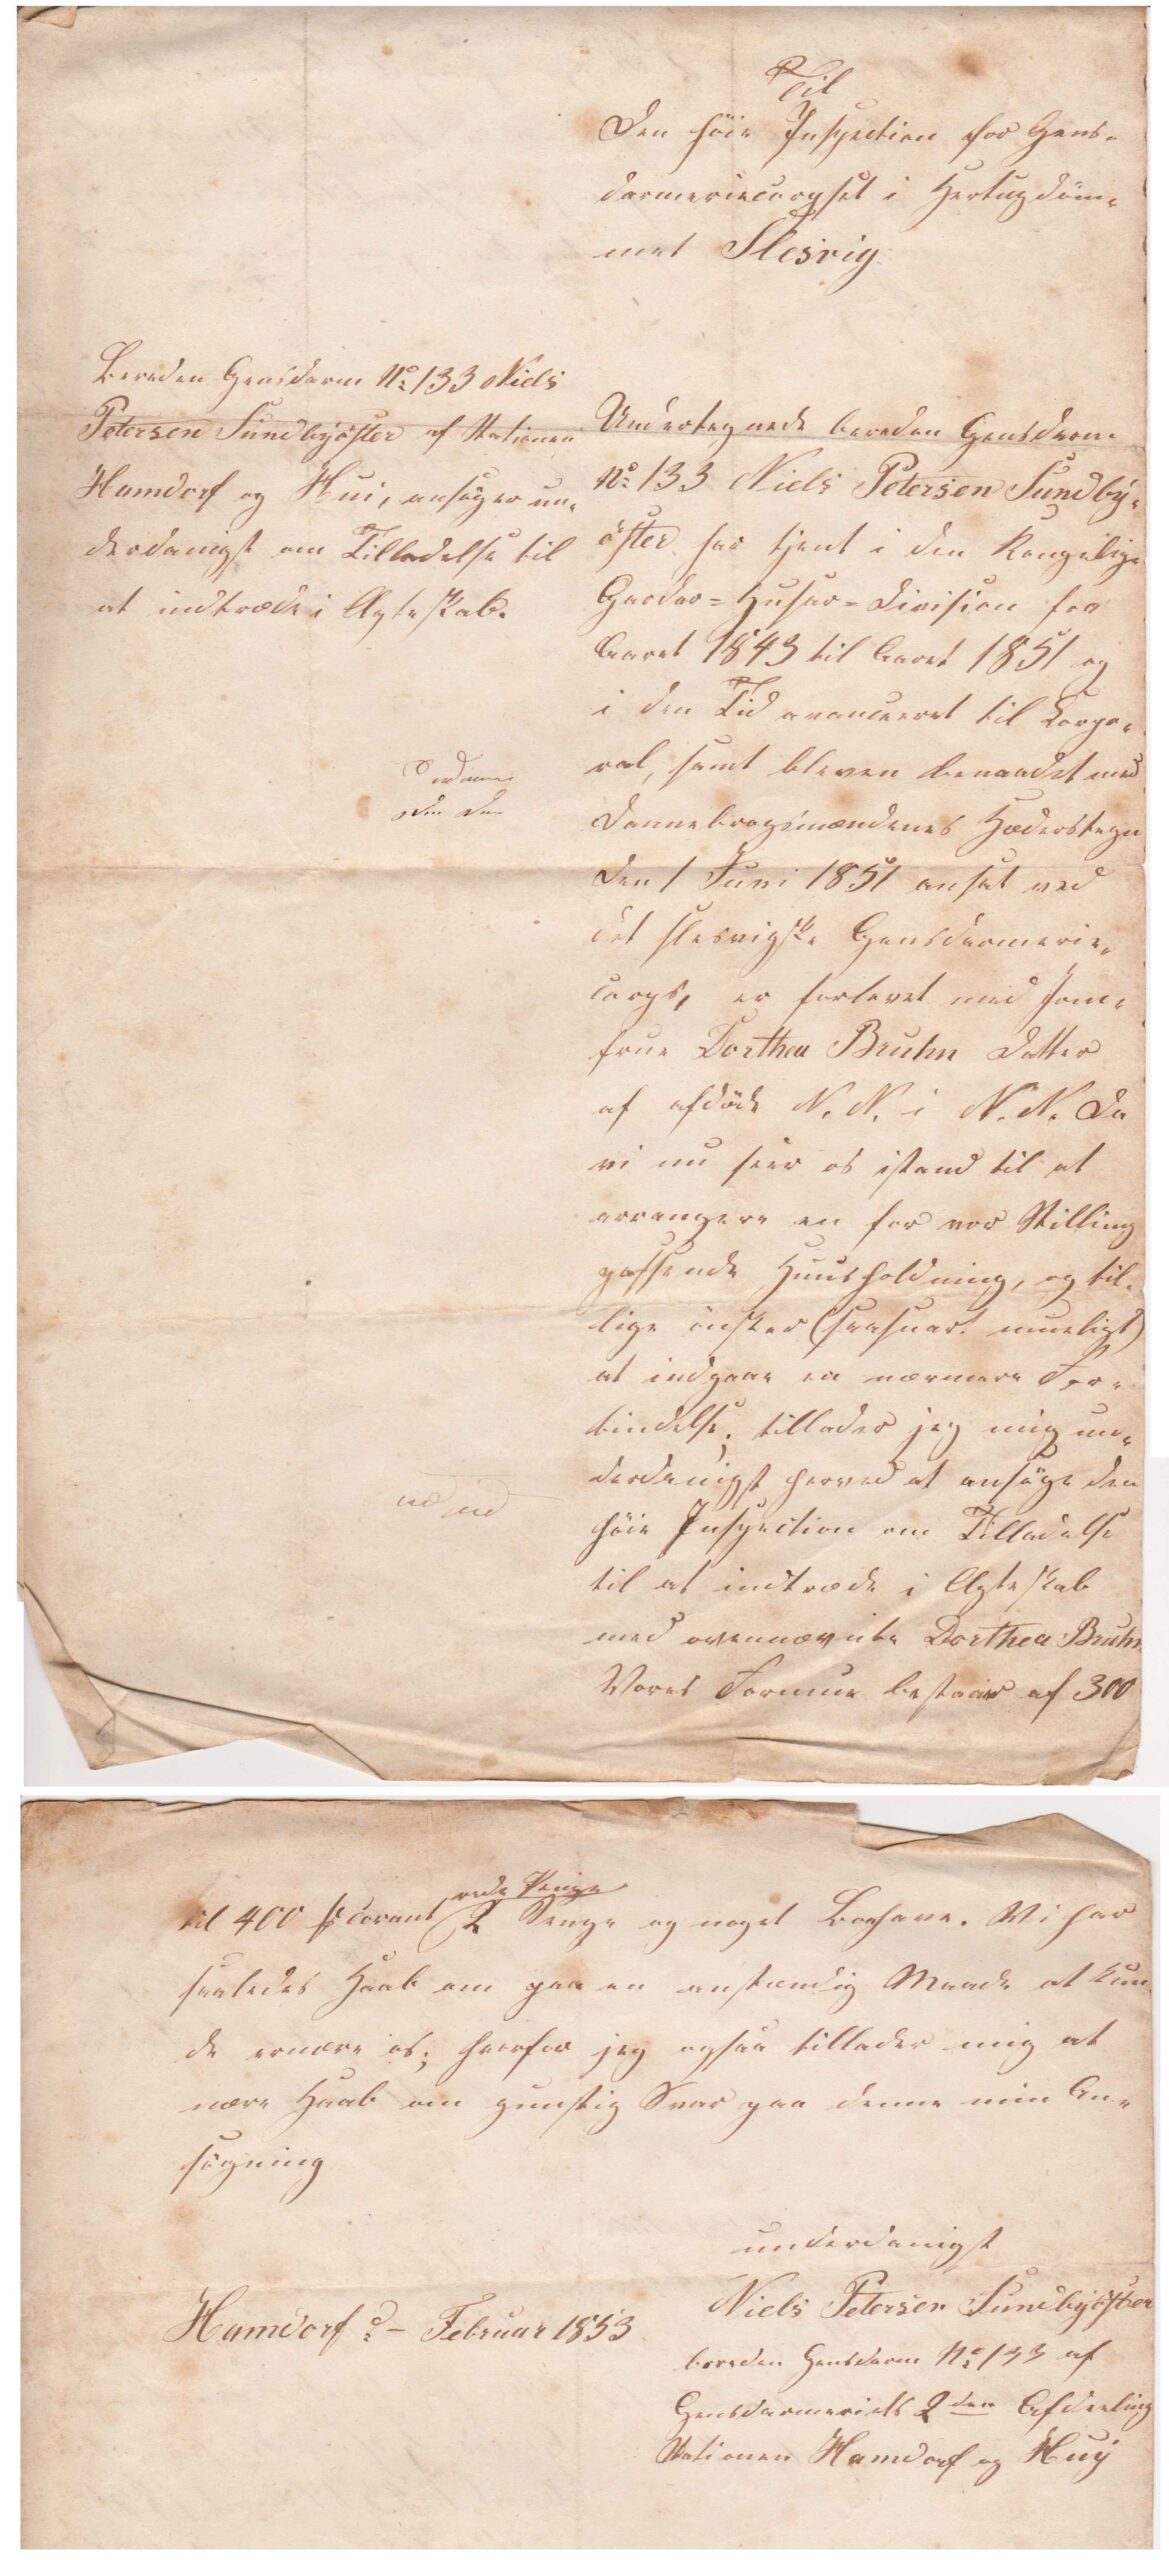 Til
Den höie Inspection for Gens-
darmeriecorpset i Hertugdöm-
met Slesvig
Bereden Gensdarm No 133 Niels
Petersen Sundbyöster af Stationen
Hamdorf og Hui, ansöger un-
derdanigst om Tilladelse til
at indtræde i Ægteskab.
Undertegnede bereden Gensdarm
No 133 Niels Petersen Sundby-
öster har tjent i den Kongelige
Garder-Husar-Division fra
Aaret 1843 til Aaret 1851 og
i den Tid avanceeret til Corpo-
ral, samt bleven benaadet med
Dannebrogsmændenes Hæderstegn
den 1 Juni 1851 ansat ved
det slesvigske Gensdarmerie-
corps, er forlovet med Jom-
frue Dorthea Bruhn Datter
af afdöde N. N. i N. N. Da
vi nu seer os istand til at
arrangere en for vor Stilling
passende Huusholdning, og til-
lige önsker (saasnart mueligt)
at indgaae en nærmere For-
bindelse; tillader jeg mig un-
derdanigst herved at ansöge den
höie Inspection om Tilladelse
til at indtræde i Ægteskab
med ovennævnte Dorthea Bruhn
Vores Formue bestaar af 300
til 400 Corant rede Penge
2 Senge og noget Bohave. Vi har
saaledes Haab om paa en anstændig Maade at kun-
de ernære os; hvorfor jeg ogsaa tillader mig at
nære Haab om gunstig Svar paa denne min An-
sögning
underdanigst
Niels Petersen Sundbyöster
Hamdorf d - Februar 1853
bereden Gensdarm No 133 af
Gensdarmeriets 2den Afdeeling
Stationen Hamdorf og Huy